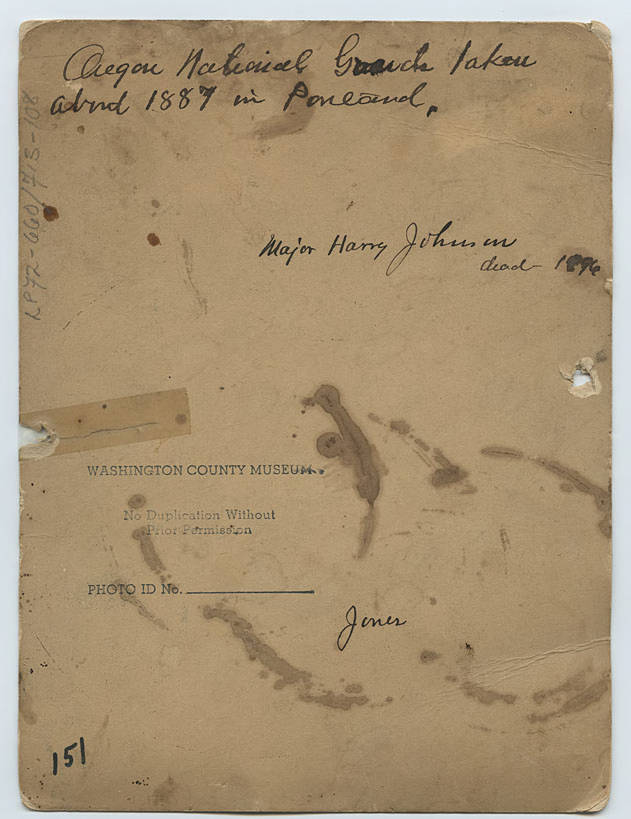 Oregon National Guards taken
about 1887 in Portland.
LP72-660/713-108
Major Harry Johnson
dead - 1896
WASHINGTON COUNTY MUSEUM
No Duplication Without
Prior Permission
PHOTO ID No.
Jones
151